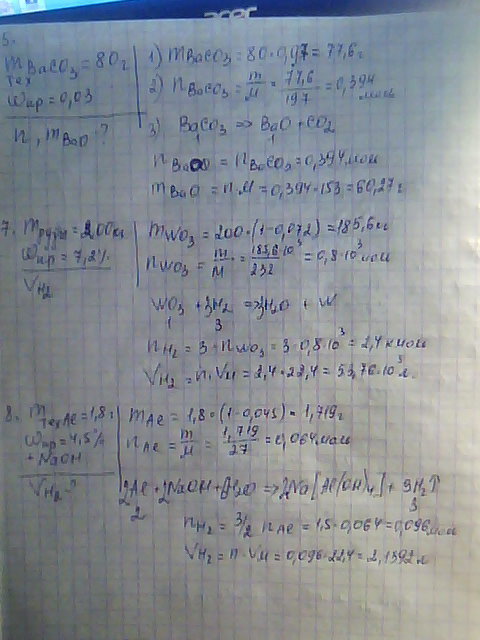 acer
5.
m BaCO₃ = 80г
тех
ω пр = 0,03
n, m BaO - ?
1) m BaCO₃ = 80·0,97 = 77,6г
2) n BaCO₃ = m/M = 77,6/197 = 0,394 моль
3) BaCO₃ => BaO + CO₂
1 1
n BaO = n BaCO₃ = 0,394 моль
m BaO = n·M = 0,394·153 = 60,27г
7. m руды = 200кг
ω пр = 7,2%
V H₂
m WO₃ = 200·(1-0,072) = 185,6кг
n WO₃ = m/M = 185,6·10³/232 = 0,8·10³ моль
WO₃ + 3H₂ => 3H₂O + W
1 3
n H₂ = 3·n WO₃ = 3·0,8·10³ = 2,4 кмоль
V H₂ = n·Vм = 2,4·22,4 = 53,76·10³ л.
8. m тех Al = 1,8г
ω пр = 4,5%
+ NaOH
V H₂ - ?
m Al = 1,8·(1-0,045) = 1,719г
n Al = m/M = 1,719/27 = 0,064 моль
2Al + 2NaOH + 6H₂O => 2Na[Al(OH)₄] + 3H₂↑
2 3
n H₂ = 3/2 n Al = 1,5·0,064 = 0,096 моль
V H₂ = n·Vм = 0,096·22,4 = 2,1392 л